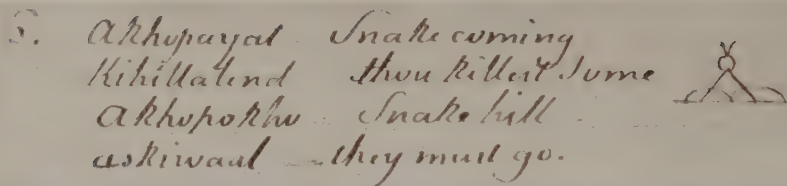 5. Akhopayat Snake coming
Kihillalend thou killest some
Akhopokho Snake hill
askiwaal they must go.